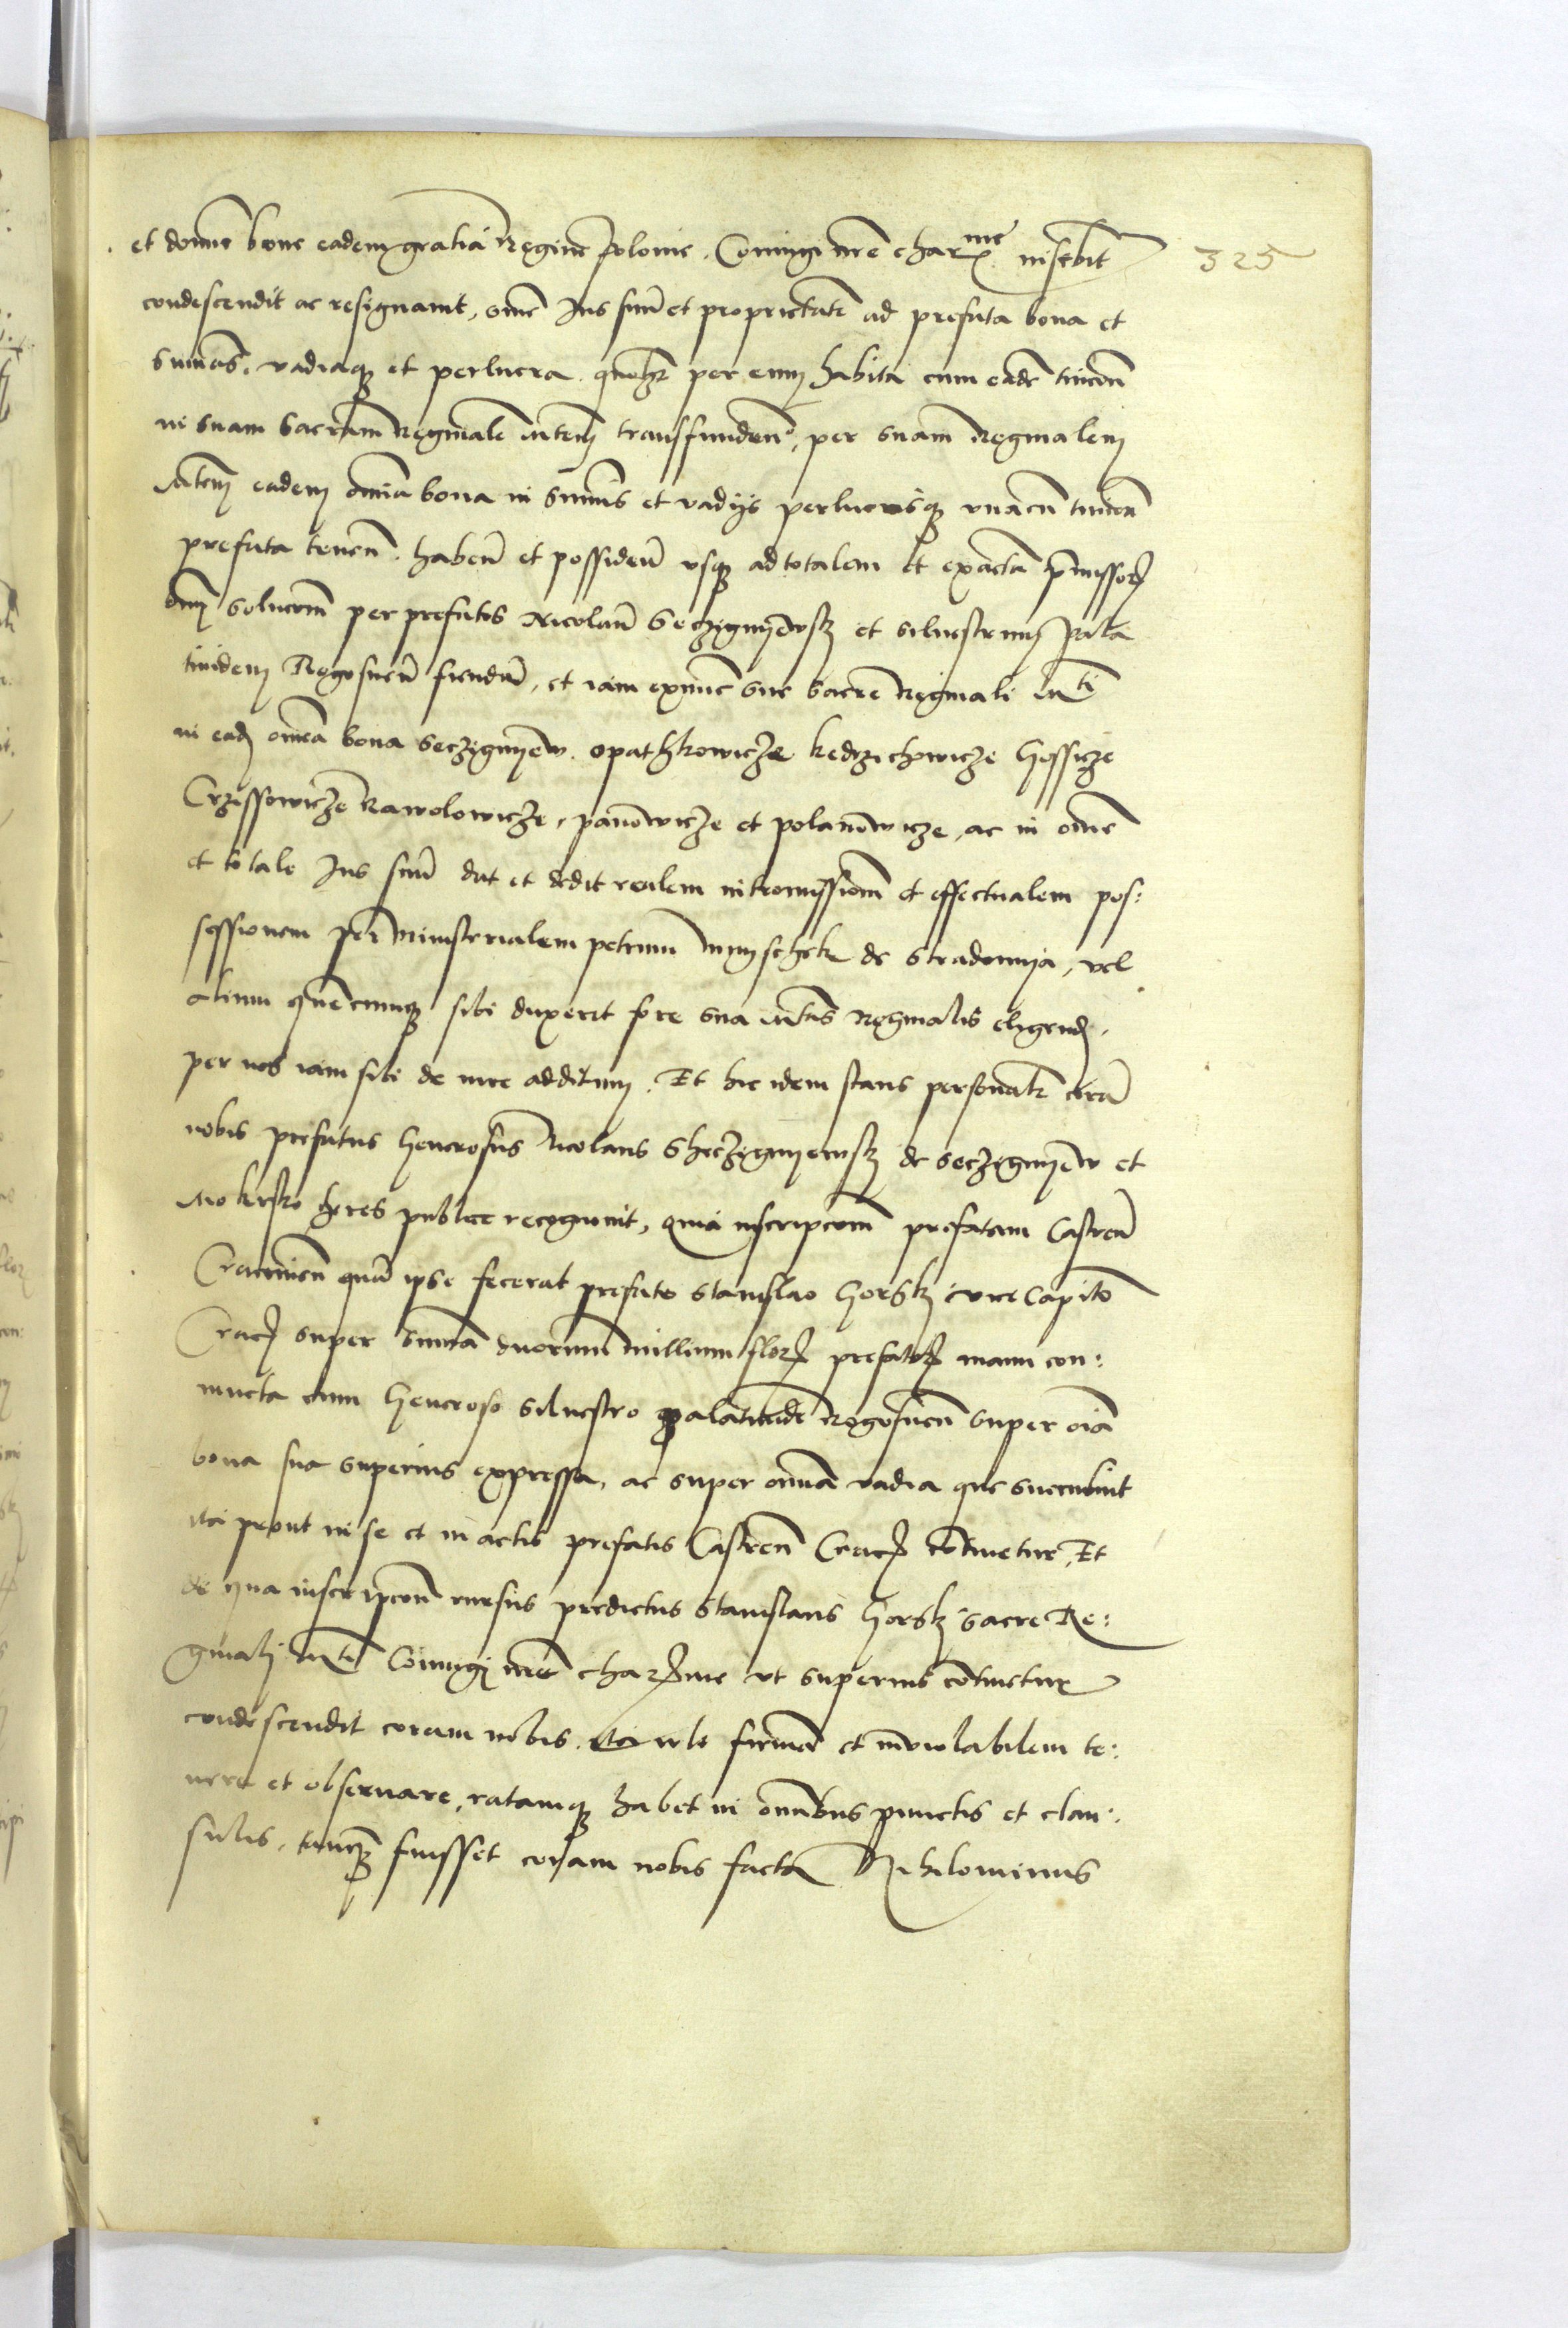 et domine bone eadem gratia Regine Polonie, Coniugi nre charme inscribit 325
condescendit ac resignavit, omne Ius suum et proprietatem ad prefata bona et
summas, vadiaque et perlucra quolibet per eum habita cum eade tuicion
in suam Sacram Reginalem Mtem transfundens, per suam Reginalem
Mtem eadem omnia bona in summis et vadijs perlucrisque vnacum tuicion
prefata tenen. haben et possiden vsque ad totalem et exactam premissorum
omnium solucionem per prefatos Nicolaum Seczigmijewsky et Siluestrum Pala
tinidem Rogosnen fiendam, et iam exnunc sue Sacre Reginali Mti
in eadem omnia bona Seczigmijew, opathkowicze kedrzichowicze Gossicze
Crzessowicze Rawolowicze, panowicze et polanowicze, ac in omne
et totale Ius suum dat et dedit realem intromissionem et effectualem pos:
sessionem per Ministerialem petrum mijschek de Stradomija, vel
alium quemcumque sibi duxerit fore sua Mtas Reginalis eligend.
per nos iam sibi de iure additum. Et hic idem stans personaliter coram
nobis prefatus Generosus Nicolaus Sheczigmijewsky de Seczigmijew et
Mokrsko heres publice recognovit, quia inscripcionem prefatam Castren
Cracouien quam ipse fecerat prefato Stanislao Gorsky vice Capitaneo
Cracovien super summa duorum millium florenorum prefatorum manu con:
iuncta cum Generoso Siluestro palatinide Rogosnen super omnia
bona sua superius expressa, ac super omnia vadia que succubuit
ita prout in se et in actis prefatis Castren Cracovien continetur, Et
de qua inscripcione rursus predictus Stanislaus Gorsky sacre Re:
ginali Mti Coniugi nre charme vt superius continetur
condescendit coram nobis, ita vult firmam et inviolabilem te:
nere et obseruare, ratamque habet in omnibus punctis et clau:
sulis, tanquam fuisset coram nobis facta Nihilominus